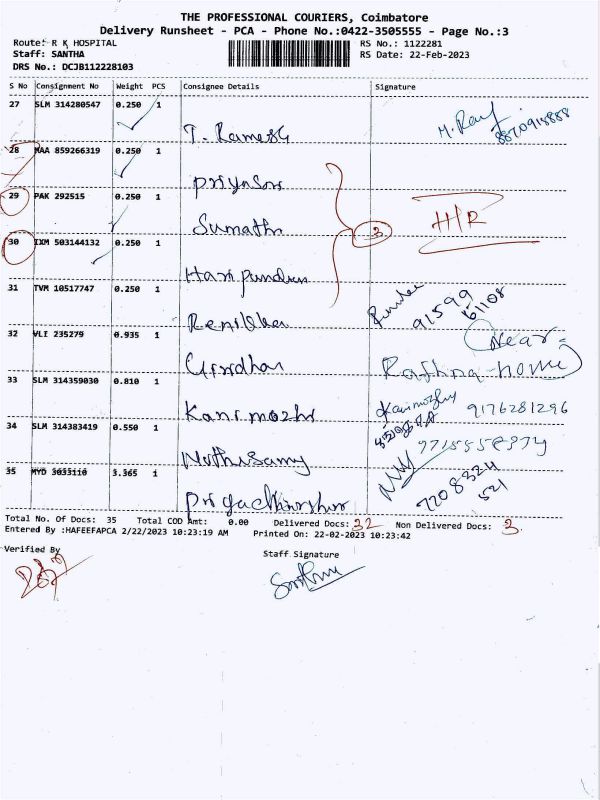 THE PROFESSIONAL COURIERS, Coimbatore
Delivery Runsheet - PCA - Phone No.:0422-3505555 - Page No.:3
Route: R K HOSPITAL
Staff: SANTHA
DRS No.: DCJB112228103
RS No.: 1122281
RS Date: 22-Feb-2023
S No Consignment No Weight PCS Consignee Details Signature
27 SLM 314280547 0.250 1
T. Ramesh
28 MAA 859266319 0.250 1
29 PAK 292515 0.250 1
Sumathi
30 IXM 503144132 0.250 1
3
31 TVM 10517747 0.250 1
91599
61108
32 VLI 235279 0.935 1
Near
home
33 SLM 314359030 0.810 1
Kanimozhi
9176281296
34 SLM 314383419 0.550 1
Muthusamy
35 MYD 3033110 3.365 1
7208324
521
Total No. Of Docs: 35 Total COD Amt: 0.00 Delivered Docs: 32 Non Delivered Docs: 3.
Entered By :HAFEEFAPCA 2/22/2023 10:23:19 AM Printed On: 22-02-2023 10:23:42
Verified By
Staff Signature